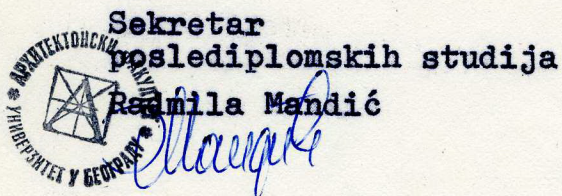 Sekretar
poslediplomskih studija
Radmila Mandić
АРХИТЕКТОНСКИ ФАКУЛТЕТ
УНИВЕРЗИТЕТ У БЕОГРАДУ
Мандић